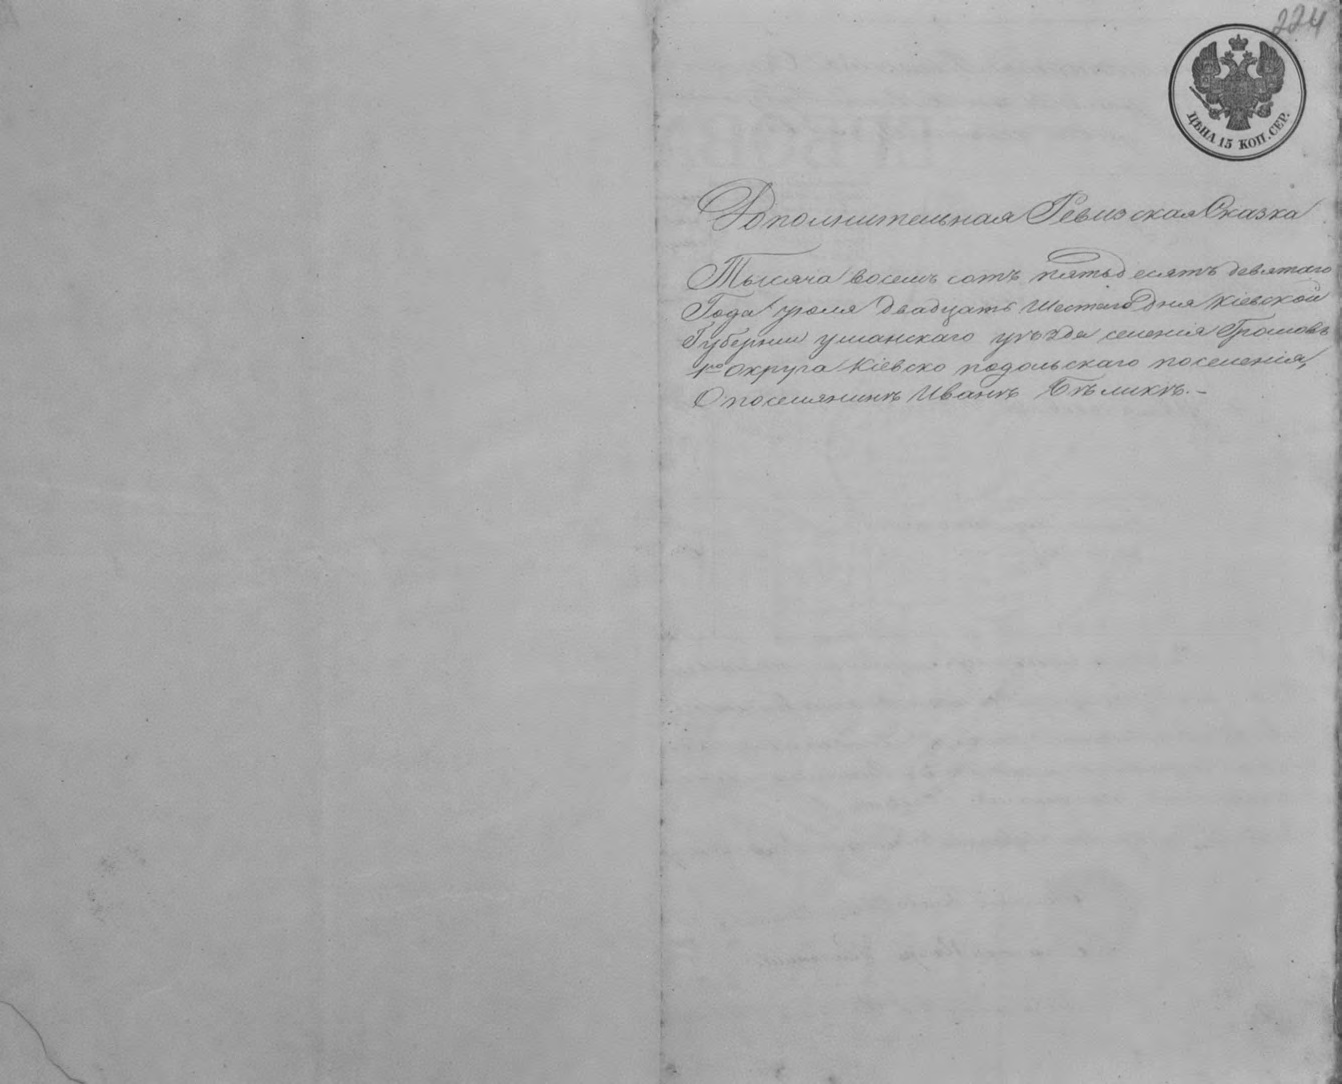 224
ЦѢНА 15 КОП. СЕР.
Дополнительная Ревизская Сказка
Тысяча восемь сотъ пятьдесятъ девятаго
Года июля двадцать Шестаго Дня Кіевской
Губерніи уманскаго уѣзда селенія Громовъ
1го Округа Кіевско подольскаго поселенія,
О поселянинѣ Иванѣ Бѣликѣ. –